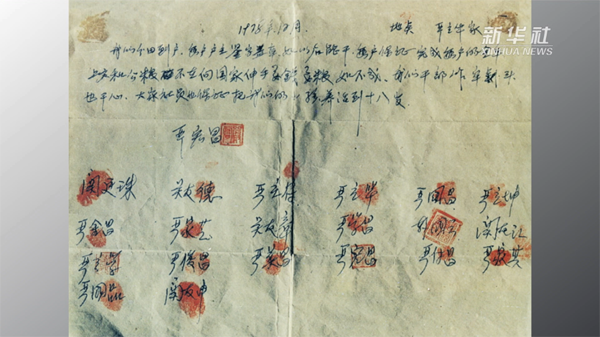 新华社
1978年12月 地点 严立华家
我们分田到户，每户户主签字盖章，如以后能干，每户保证完成每户的全年上
交和公粮，不在向国家伸手要钱要粮，如不成，我们干部作牢刹头
也干心，大家社员也保证把我们的小孩养活到十八岁
严宏昌
关友德 严立符 严立华 严国昌 严立坤
严金昌 严家芝 关友章 严学昌 韩国云 关友江
严立学 严俊昌 严美昌 严宏昌 严付昌 严家其
严国品 关友申